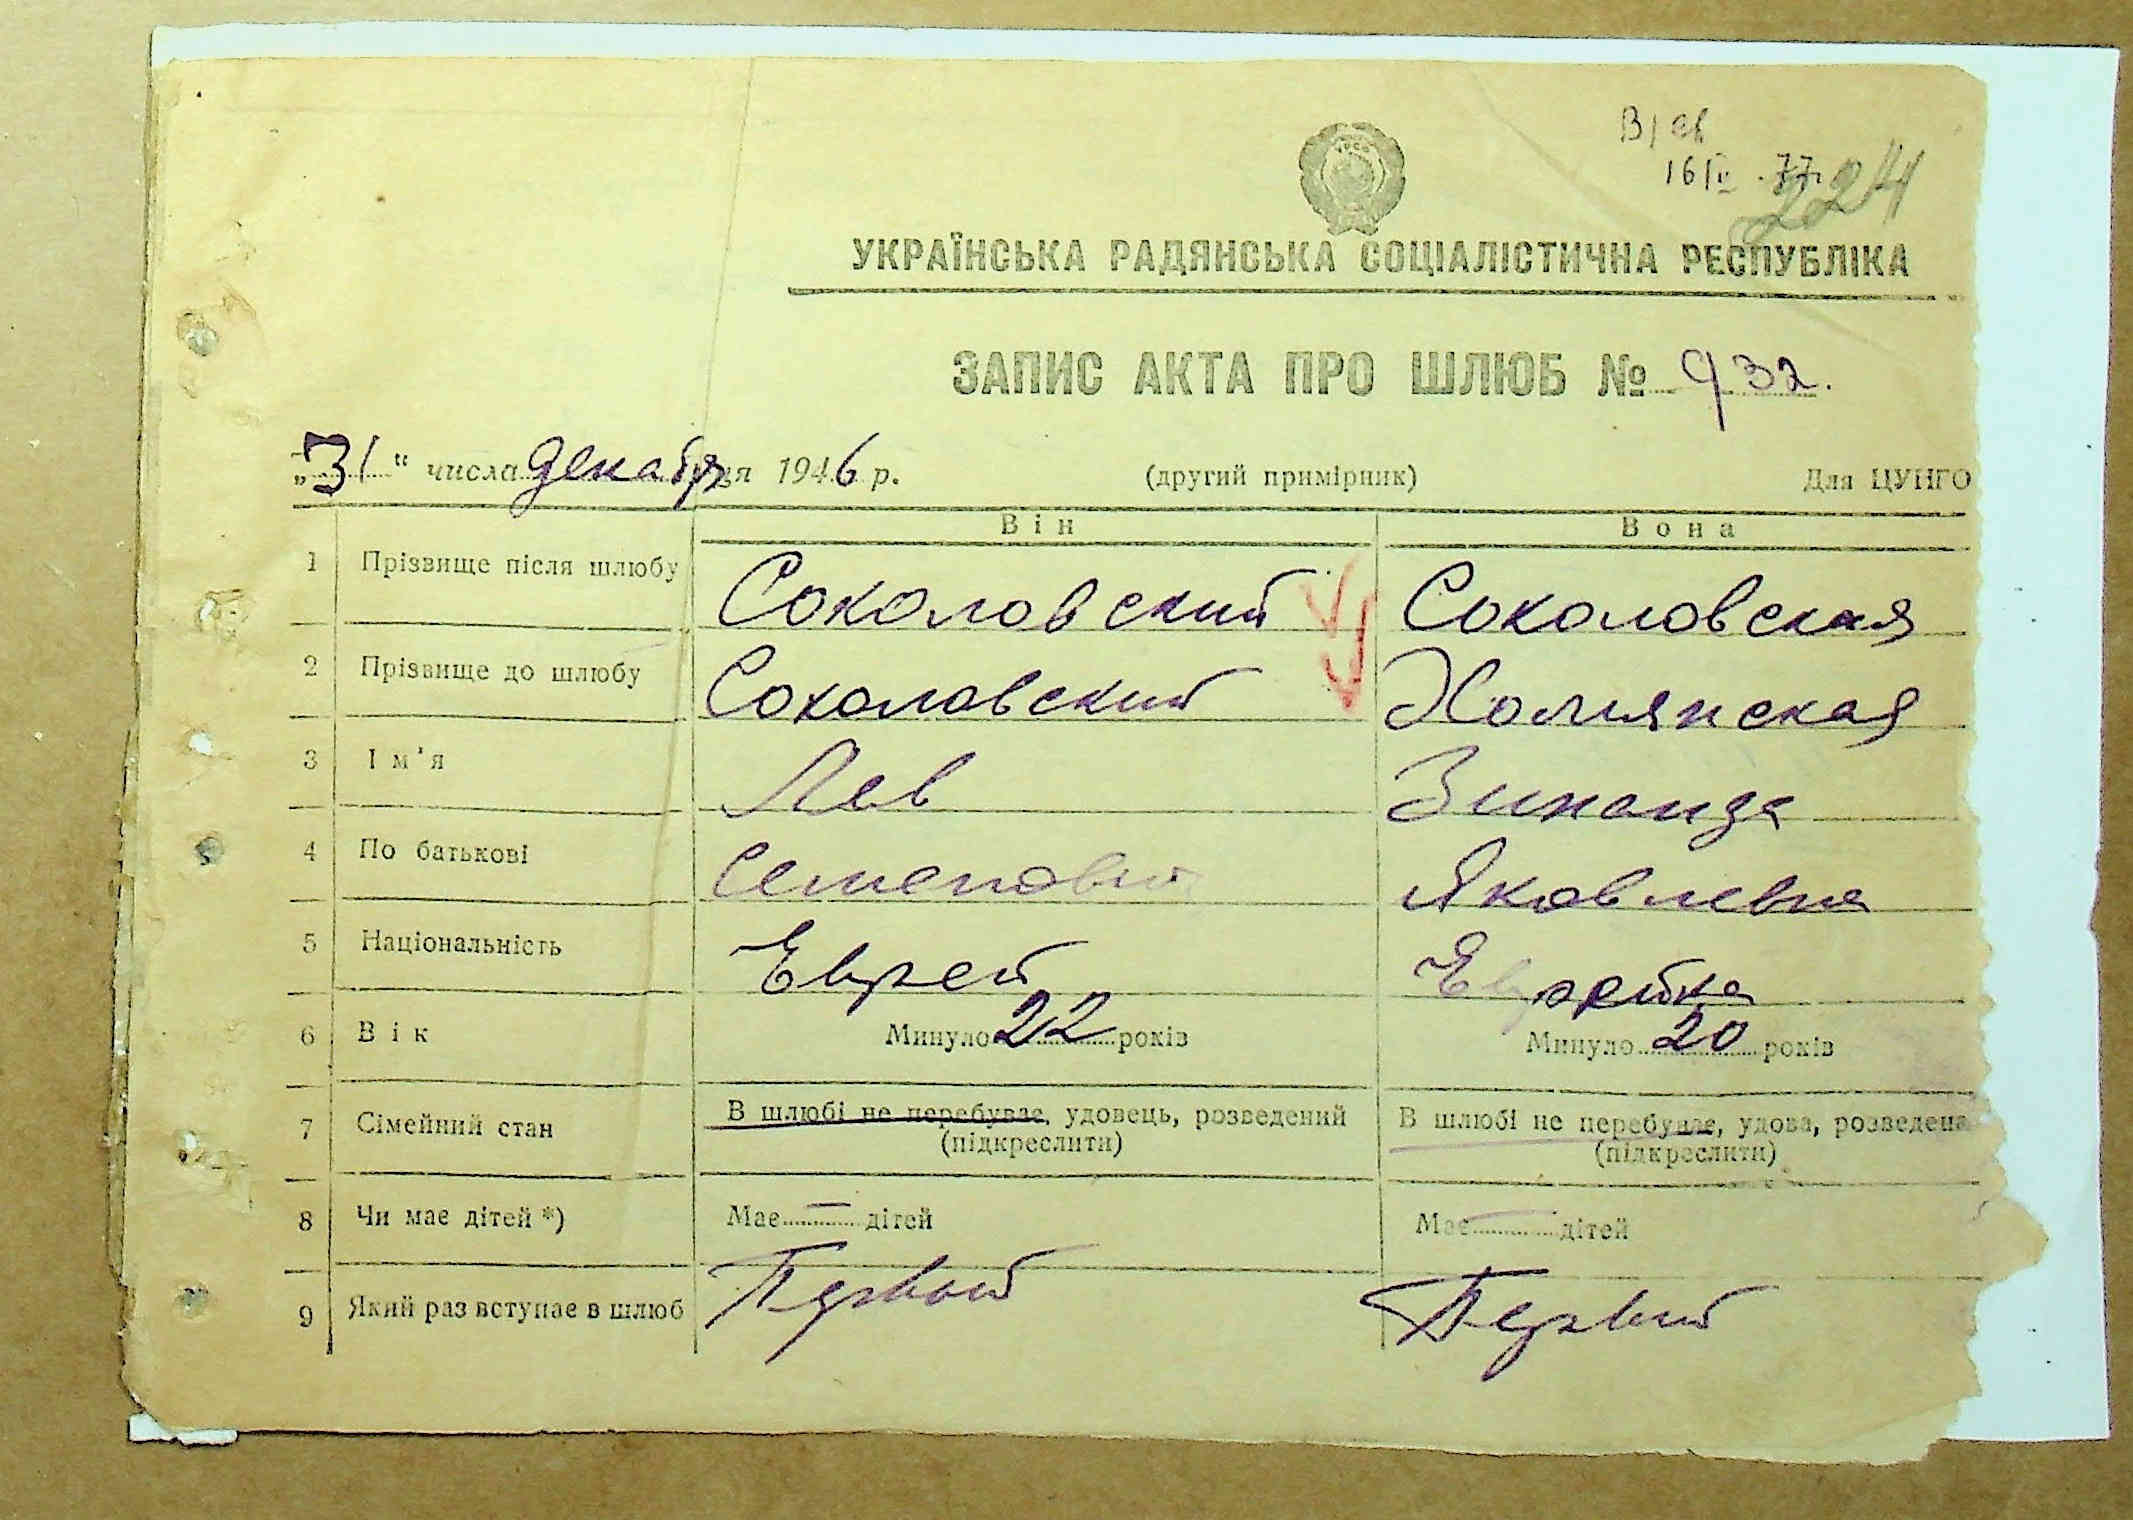 16/IV.77
224
УКРАЇНСЬКА РАДЯНСЬКА СОЦІАЛІСТИЧНА РЕСПУБЛІКА
ЗАПИС АКТА ПРО ШЛЮБ № 932.
„31“ числа декабря ця 1946 р. (другий примірник) Для ЦУНГО
Він Вона
1 Прізвище після шлюбу Соколовский Соколовская
2 Прізвище до шлюбу Соколовский Холмянская
3 Ім'я Лев Зинаида
4 По батькові Семенович Яковлевна
5 Національність Еврей Еврейка
6 Вік Минуло 22 років Минуло 20 років
7 Сімейний стан В шлюбі не перебуває, удовець, розведений В шлюбі не перебуває, удова, розведена
(підкреслити) (підкреслити)
8 Чи має дітей *) Має — дітей Має — дітей
9 Який раз вступає в шлюб Первый Первый